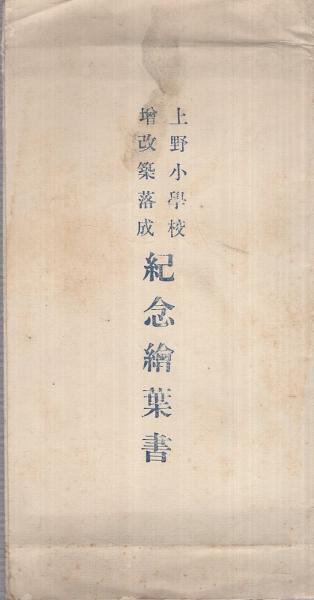 上野小學校
增改築落成
紀念繪葉書